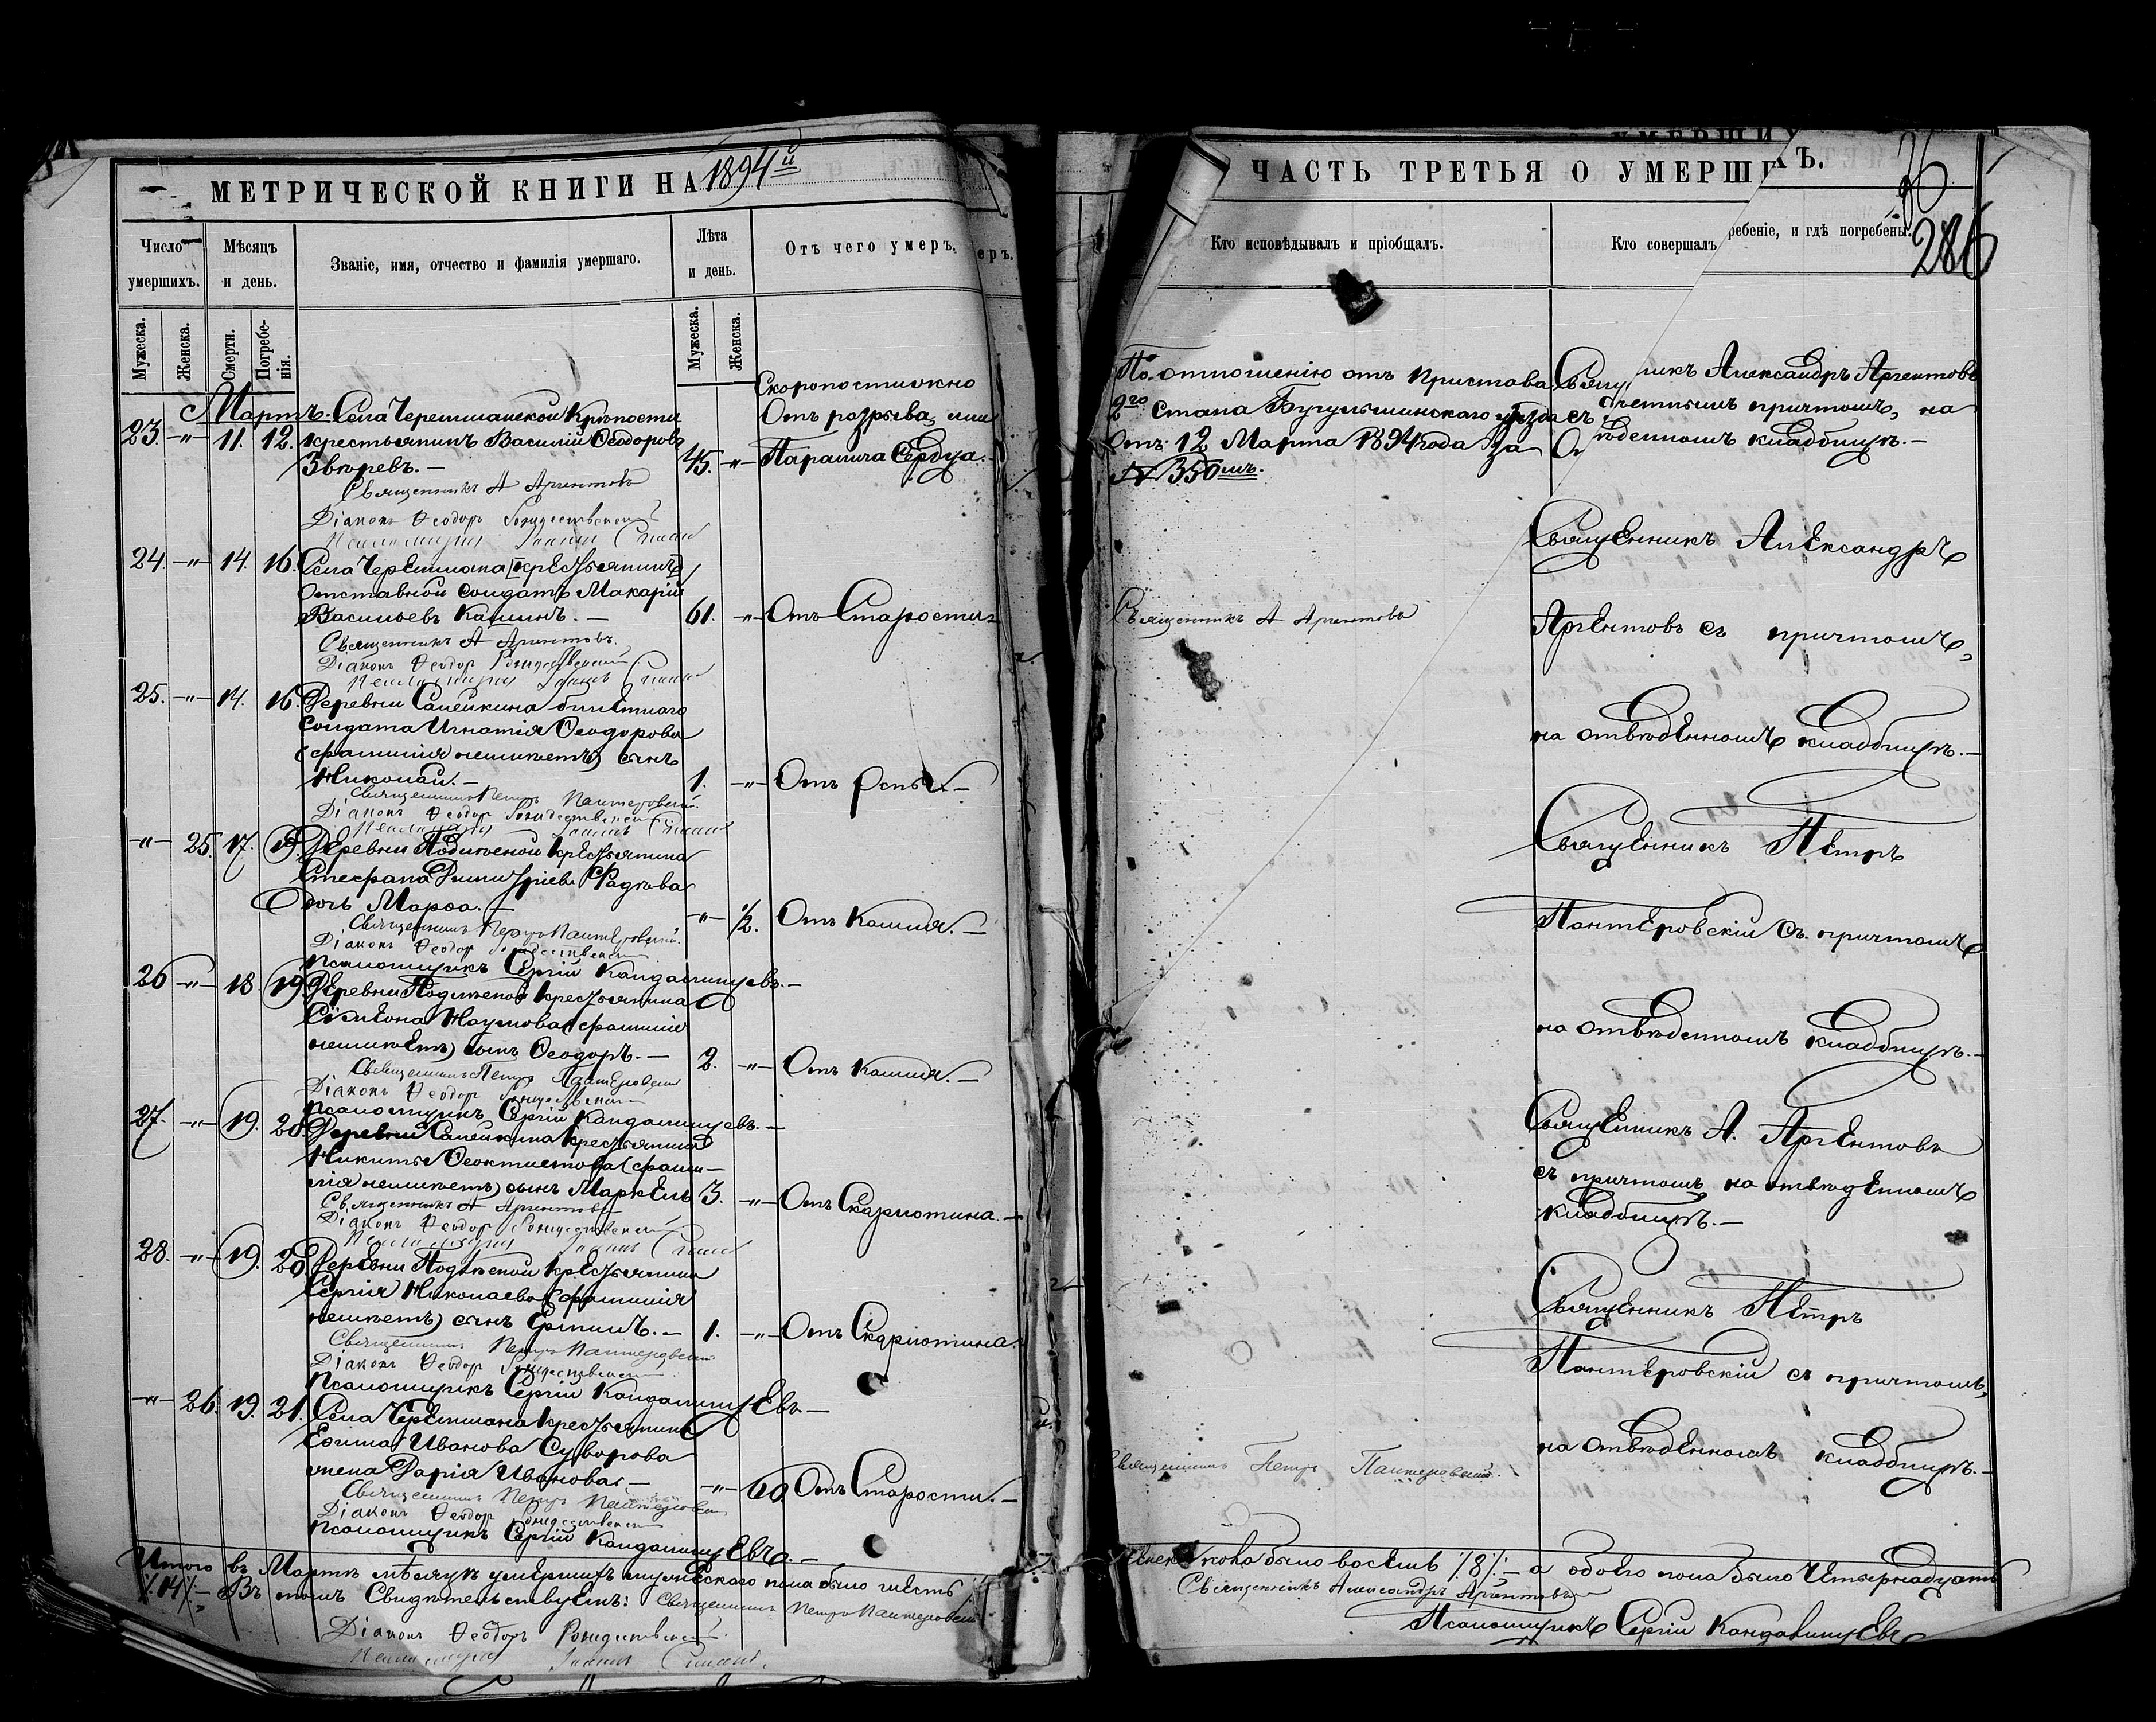 МЕТРИЧЕСКОЙ КНИГИ НА 1894й
Число умершихъ.
Мѣсяцъ и день.
Званіе, имя, отчество и фамилія умершаго.
Лѣта и день.
Отъ чего умеръ.
еръ.
Мужеска.
Женска.
Смерти.
Погребенія.
Мужеска.
Женска.
Скоропостижно
Мартъ. Села Черемшанской Крѣпости Отъ разрыва, или
23. -"- 11. 12. крестьянинъ Василій Ѳеодоровъ
Звѣревъ.- 45. -"- Паралича Сердца.
Священникъ А Аргентовъ
Діаконъ Ѳеодоръ Рождественскій
Псаломщикъ Іоаннъ
24. -"- 14. 16. Села Черемшана [крестьянинъ]
Отставной солдатъ Макарій
Васильевъ Калининъ.- 61. -"- Отъ Старости
Священникъ А Аргентовъ.
Діаконъ Ѳеодоръ Рождественскій
Псаломщикъ Іоаннъ
25. -"- 14. 16. Деревни Сапейкина билетнаго
солдата Игнатія Ѳеодорова
(фамиліи неимѣетъ) сынъ
Николай.- 1. -"- Отъ оспы.-
Священникъ Петръ Пантеровскій.
Діаконъ Ѳеодоръ Рождественскій
Псаломщикъ Іоаннъ
-"- 25. 17. Деревни крестьянина
Стефана Димитріева
дочь Марѳа.- -"- 1/2. Отъ Кашля.-
Священникъ Петръ Пантеровскій.
Діаконъ Ѳеодоръ Рождественскій
Псаломщикъ Сергій Кандалинцевъ.-
26 -"- 18 19 Деревни крестьянина
Симеона Наумова (фамиліи
неимѣетъ) сынъ Ѳеодоръ.- 2. -"- Отъ Кашля.-
Священникъ Петръ Пантеровскій
Діаконъ Ѳеодоръ Рождественскій
Псаломщикъ Сергій Кандалинцевъ.-
27. -"- 19. 20. Деревни Сапейкина крестьянина
Никиты Ѳеоктистова (фами-
лія неимѣетъ) сынъ Маркелъ 3. -"- Отъ Скарлотина.-
Священникъ А Аргентовъ
Діаконъ Ѳеодоръ Рождественскій
Псаломщикъ Іоаннъ
28. -"- 19. 20. Деревни крестьянина
Сергія Николаева (фамилія
неимѣетъ) сынъ 1. -"- Отъ Скарлотина.
Священникъ Петръ Пантеровскій
Діаконъ Ѳеодоръ Рождественскій
Псаломщикъ Сергій Кандалинцевъ-
-"- 26. 19. 21. Села Черемшана крестьянина
Ефима Иванова Суворова
жена Дарія Иванова.- -"- 60. Отъ Старости.-
Священникъ Петръ Пантеровскій
Діаконъ Ѳеодоръ Рождественскій
Псаломщикъ Сергій Кандалинцевъ.-
Итого въ Мартѣ мѣсяцѣ умершихъ мужескаго пола было шесть
/.14/.- Въ томъ Свидѣтельствуемъ: Священникъ Петръ Пантеровскій
Діаконъ Ѳеодоръ Рождественскій.
Псаломщикъ Іоаннъ
ЧАСТЬ ТРЕТЬЯ О УМЕРШИ
ХЪ.
286
Кто исповѣдывалъ и пріобщалъ.
Кто совершалъ
ребеніе, и гдѣ погребены.
По отношенію отъ Пристава
2го Стана Бугульминскаго уѣзда
Отъ 12 Марта 1894 года за
№ 350мъ.
никъ Александръ Аргентовъ
съ причтомъ, на
кладбищѣ.-
Священникъ Александръ
Священникъ А Аргентовъ
Аргентовъ съ причтомъ,
на отведенномъ кладбищѣ.-
Священникъ Петръ
Пантеровскій съ причтомъ
на отведенномъ кладбищѣ.-
Священникъ А. Аргентовъ
съ причтомъ на отведенномъ
кладбищѣ.-
Священникъ Петръ
Пантеровскій съ причтомъ,
на отведенномъ кладбищѣ.-
Священникъ Петръ Пантеровскій.
пола было восемь /.8/.- а обоего пола было четырнадцать
Священникъ Александръ Аргентовъ
Псаломщикъ Сергій Кандалинцевъ